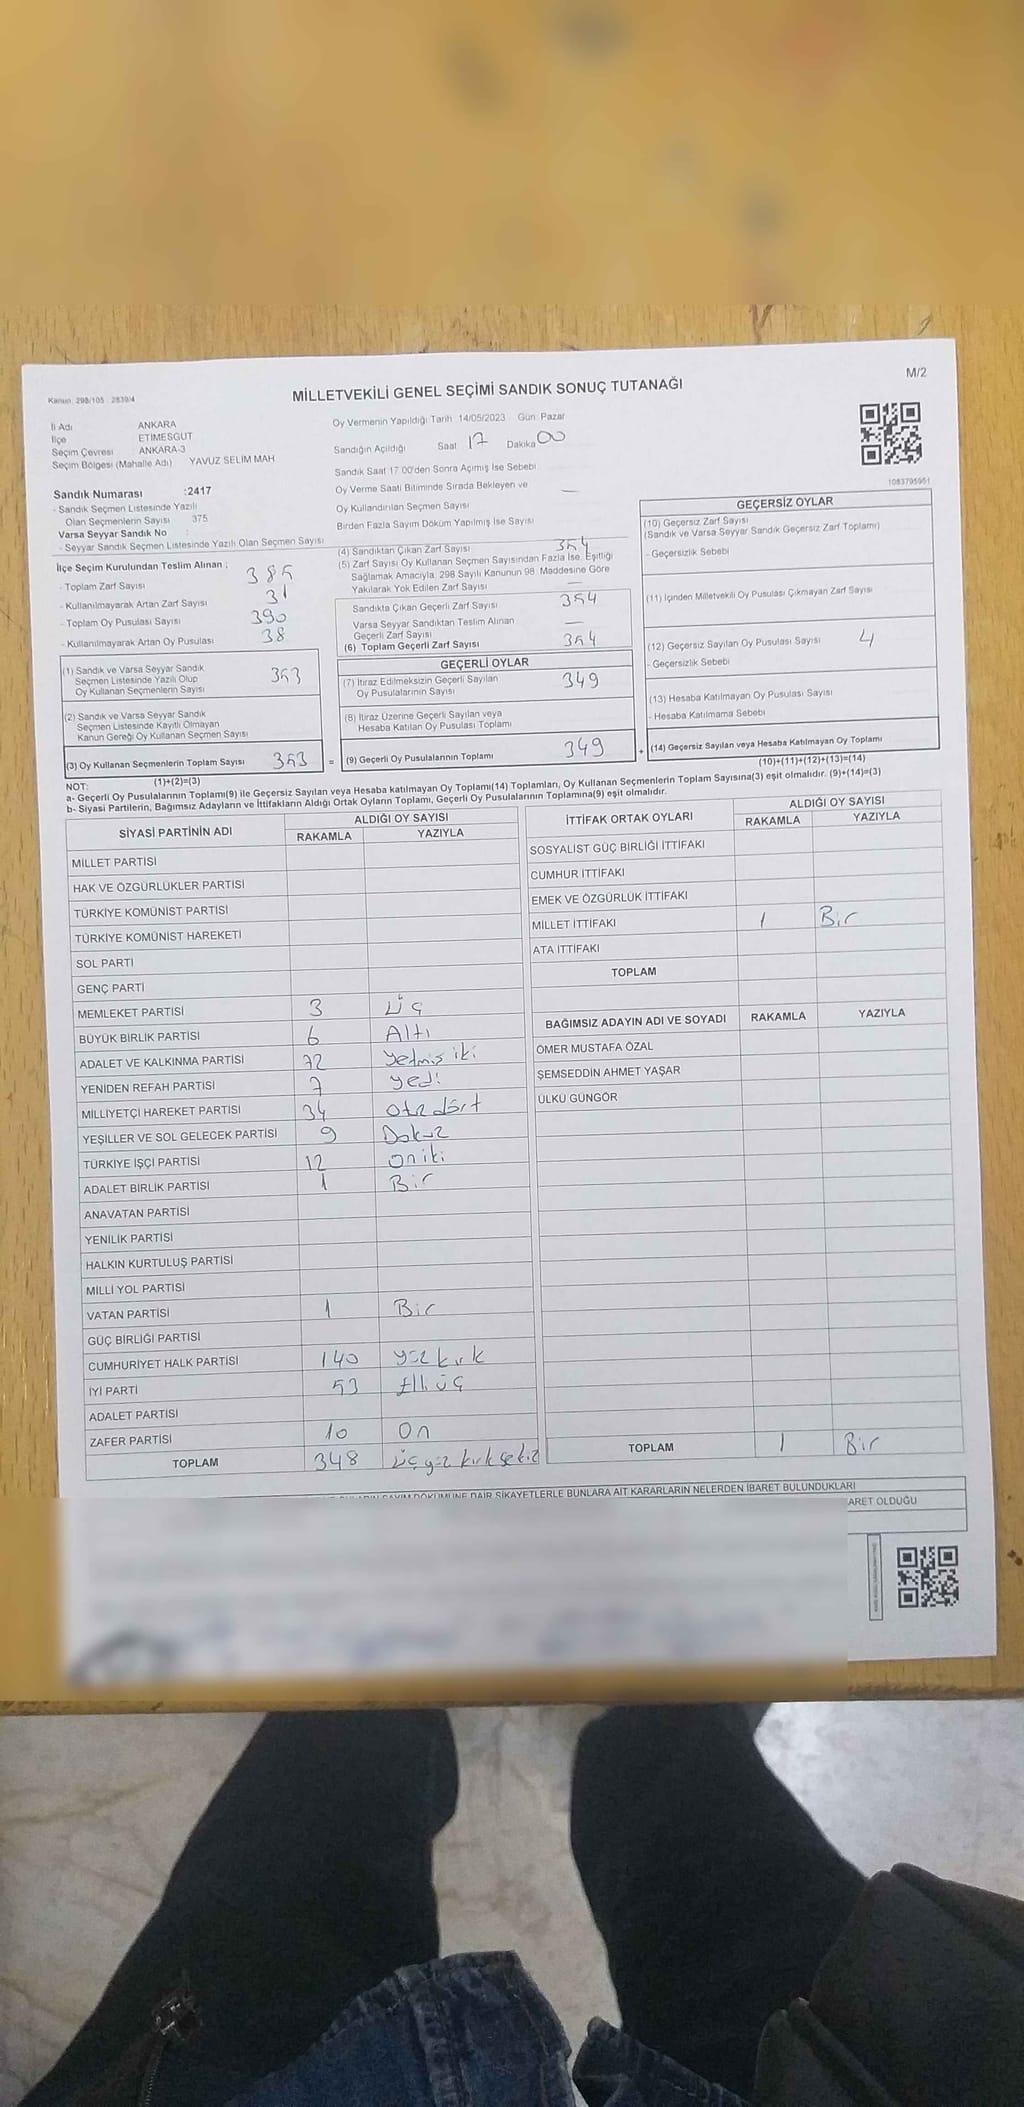 M/2
Kanun: 298/105 - 2839/4
MİLLETVEKİLİ GENEL SEÇİMİ SANDIK SONUÇ TUTANAĞI
İl Adı ANKARA
İlçe ETİMESGUT
Seçim Çevresi ANKARA-3
Seçim Bölgesi (Mahalle Adı) YAVUZ SELİM MAH
Sandık Numarası :2417
- Sandık Seçmen Listesinde Yazılı
Olan Seçmenlerin Sayısı 375
Varsa Seyyar Sandık No :
- Seyyar Sandık Seçmen Listesinde Yazılı Olan Seçmen Sayısı
Oy Vermenin Yapıldığı Tarih 14/05/2023 Gün: Pazar
Sandığın Açıldığı Saat 17 Dakika 00
Sandık Saat 17:00'den Sonra Açımış İse Sebebi
Oy Verme Saati Bitiminde Sırada Bekleyen ve —
Oy Kullandırılan Seçmen Sayısı
Birden Fazla Sayım Döküm Yapılmış İse Sayısı
1083795951
İlçe Seçim Kurulundan Teslim Alınan ;
- Toplam Zarf Sayısı 385
- Kullanılmayarak Artan Zarf Sayısı 31
- Toplam Oy Pusulası Sayısı 390
- Kullanılmayarak Artan Oy Pusulası 38
(1) Sandık ve Varsa Seyyar Sandık
Seçmen Listesinde Yazılı Olup
Oy Kullanan Seçmenlerin Sayısı 353
(2) Sandık ve Varsa Seyyar Sandık
Seçmen Listesinde Kayıtlı Olmayan
Kanun Gereği Oy Kullanan Seçmen Sayısı
(3) Oy Kullanan Seçmenlerin Toplam Sayısı 353
(1)+(2)=(3)
(4) Sandıktan Çıkan Zarf Sayısı 354
(5) Zarf Sayısı Oy Kullanan Seçmen Sayısından Fazla İse, Eşitliği
Sağlamak Amacıyla, 298 Sayılı Kanunun 98. Maddesine Göre
Yakılarak Yok Edilen Zarf Sayısı —
Sandıkta Çıkan Geçerli Zarf Sayısı 354
Varsa Seyyar Sandıktan Teslim Alınan
Geçerli Zarf Sayısı —
(6) Toplam Geçerli Zarf Sayısı 354
GEÇERLİ OYLAR
(7) İtiraz Edilmeksizin Geçerli Sayılan
Oy Pusulalarının Sayısı 349
(8) İtiraz Üzerine Geçerli Sayılan veya
Hesaba Katılan Oy Pusulası Toplamı
= (9) Geçerli Oy Pusulalarının Toplamı 349 +
GEÇERSİZ OYLAR
(10) Geçersiz Zarf Sayısı
(Sandık ve Varsa Seyyar Sandık Geçersiz Zarf Toplamı)
- Geçersizlik Sebebi
(11) İçinden Milletvekili Oy Pusulası Çıkmayan Zarf Sayısı
(12) Geçersiz Sayılan Oy Pusulası Sayısı 4
- Geçersizlik Sebebi
(13) Hesaba Katılmayan Oy Pusulası Sayısı
- Hesaba Katılmama Sebebi
(14) Geçersiz Sayılan veya Hesaba Katılmayan Oy Toplamı
(10)+(11)+(12)+(13)=(14)
NOT:
a- Geçerli Oy Pusulalarının Toplamı(9) ile Geçersiz Sayılan veya Hesaba Katılmayan Oy Toplamı(14) Toplamları, Oy Kullanan Seçmenlerin Toplam Sayısına(3) eşit olmalıdır. (9)+(14)=(3)
b- Siyasi Partilerin, Bağımsız Adayların ve İttifakların Aldığı Ortak Oyların Toplamı, Geçerli Oy Pusulalarının Toplamına(9) eşit olmalıdır.
SİYASİ PARTİNİN ADI ALDIĞI OY SAYISI
RAKAMLA YAZIYLA
MİLLET PARTİSİ
HAK VE ÖZGÜRLÜKLER PARTİSİ
TÜRKİYE KOMÜNİST PARTİSİ
TÜRKİYE KOMÜNİST HAREKETİ
SOL PARTİ
GENÇ PARTİ
MEMLEKET PARTİSİ 3 üç
BÜYÜK BİRLİK PARTİSİ 6 Altı
ADALET VE KALKINMA PARTİSİ 72 yetmiş iki
YENİDEN REFAH PARTİSİ 7 yedi
MİLLİYETÇİ HAREKET PARTİSİ 34 otuz dört
YEŞİLLER VE SOL GELECEK PARTİSİ 9 Dokuz
TÜRKİYE İŞÇİ PARTİSİ 12 on iki
ADALET BİRLİK PARTİSİ 1 Bir
ANAVATAN PARTİSİ
YENİLİK PARTİSİ
HALKIN KURTULUŞ PARTİSİ
MİLLİ YOL PARTİSİ
VATAN PARTİSİ 1 Bir
GÜÇ BİRLİĞİ PARTİSİ
CUMHURİYET HALK PARTİSİ 140 yüz kırk
İYİ PARTİ 53 Elli üç
ADALET PARTİSİ
ZAFER PARTİSİ 10 On
TOPLAM 348 üç yüz kırk sekiz
İTTİFAK ORTAK OYLARI ALDIĞI OY SAYISI
RAKAMLA YAZIYLA
SOSYALİST GÜÇ BİRLİĞİ İTTİFAKI
CUMHUR İTTİFAKI
EMEK VE ÖZGÜRLÜK İTTİFAKI
MİLLET İTTİFAKI 1 Bir
ATA İTTİFAKI
TOPLAM
BAĞIMSIZ ADAYIN ADI VE SOYADI RAKAMLA YAZIYLA
ÖMER MUSTAFA ÖZAL
ŞEMSEDDİN AHMET YAŞAR
ÜLKÜ GÜNGÖR
TOPLAM 1 Bir
SAYIM DÖKÜMÜNE DAİR ŞİKAYETLERLE BUNLARA AİT KARARLARIN NELERDEN İBARET BULUNDUKLARI
ARET OLDUĞU